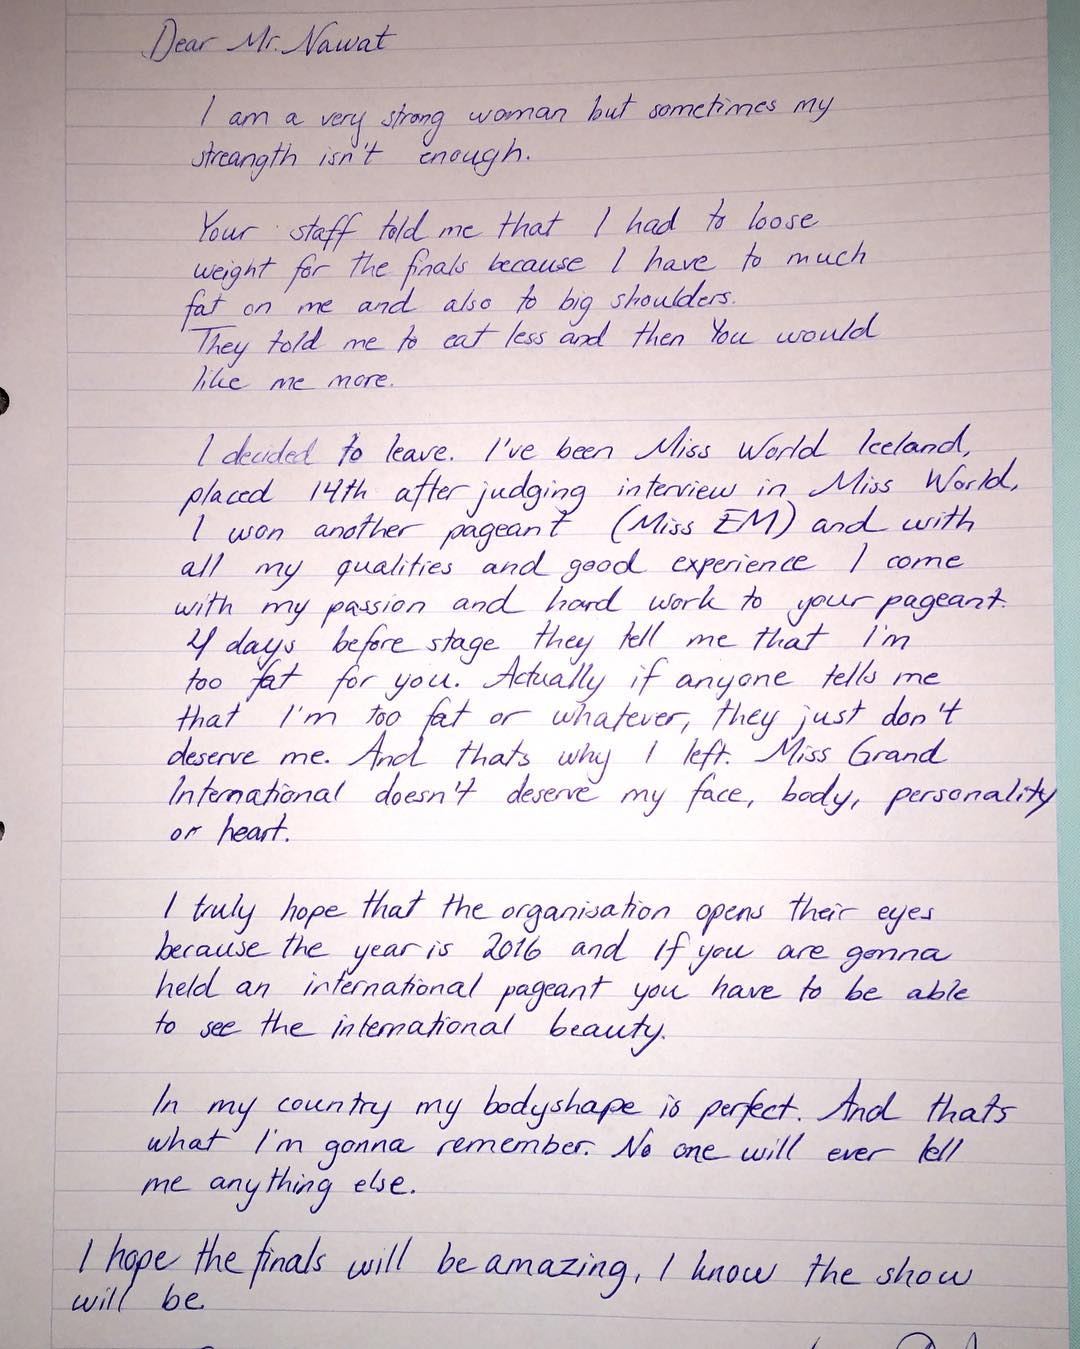 Dear Mr. Nawat
I am a very strong woman but sometimes my
streangth isn't enough.
Your staff told me that I had to loose
weight for the finals because I have to much
fat on me and also to big shoulders.
They told me to eat less and then You would
like me more.
I decided to leave. I've been Miss World Iceland,
placed 14th after judging interview in Miss World,
I won another pageant (Miss EM) and with
all my qualities and good experience I come
with my passion and hard work to your pageant.
4 days before stage they tell me that I'm
too fat for you. Actually if anyone tells me
that I'm too fat or whatever, they just don't
deserve me. And thats why I left. Miss Grand
International doesn't deserve my face, body, personality
or heart.
I truly hope that the organisation opens their eyes
because the year is 2016 and If you are gonna
held an international pageant you have to be able
to see the international beauty.
In my country my bodyshape is perfect. And thats
what I'm gonna remember. No one will ever tell
me anything else.
I hope the finals will be amazing, I know the show
will be.